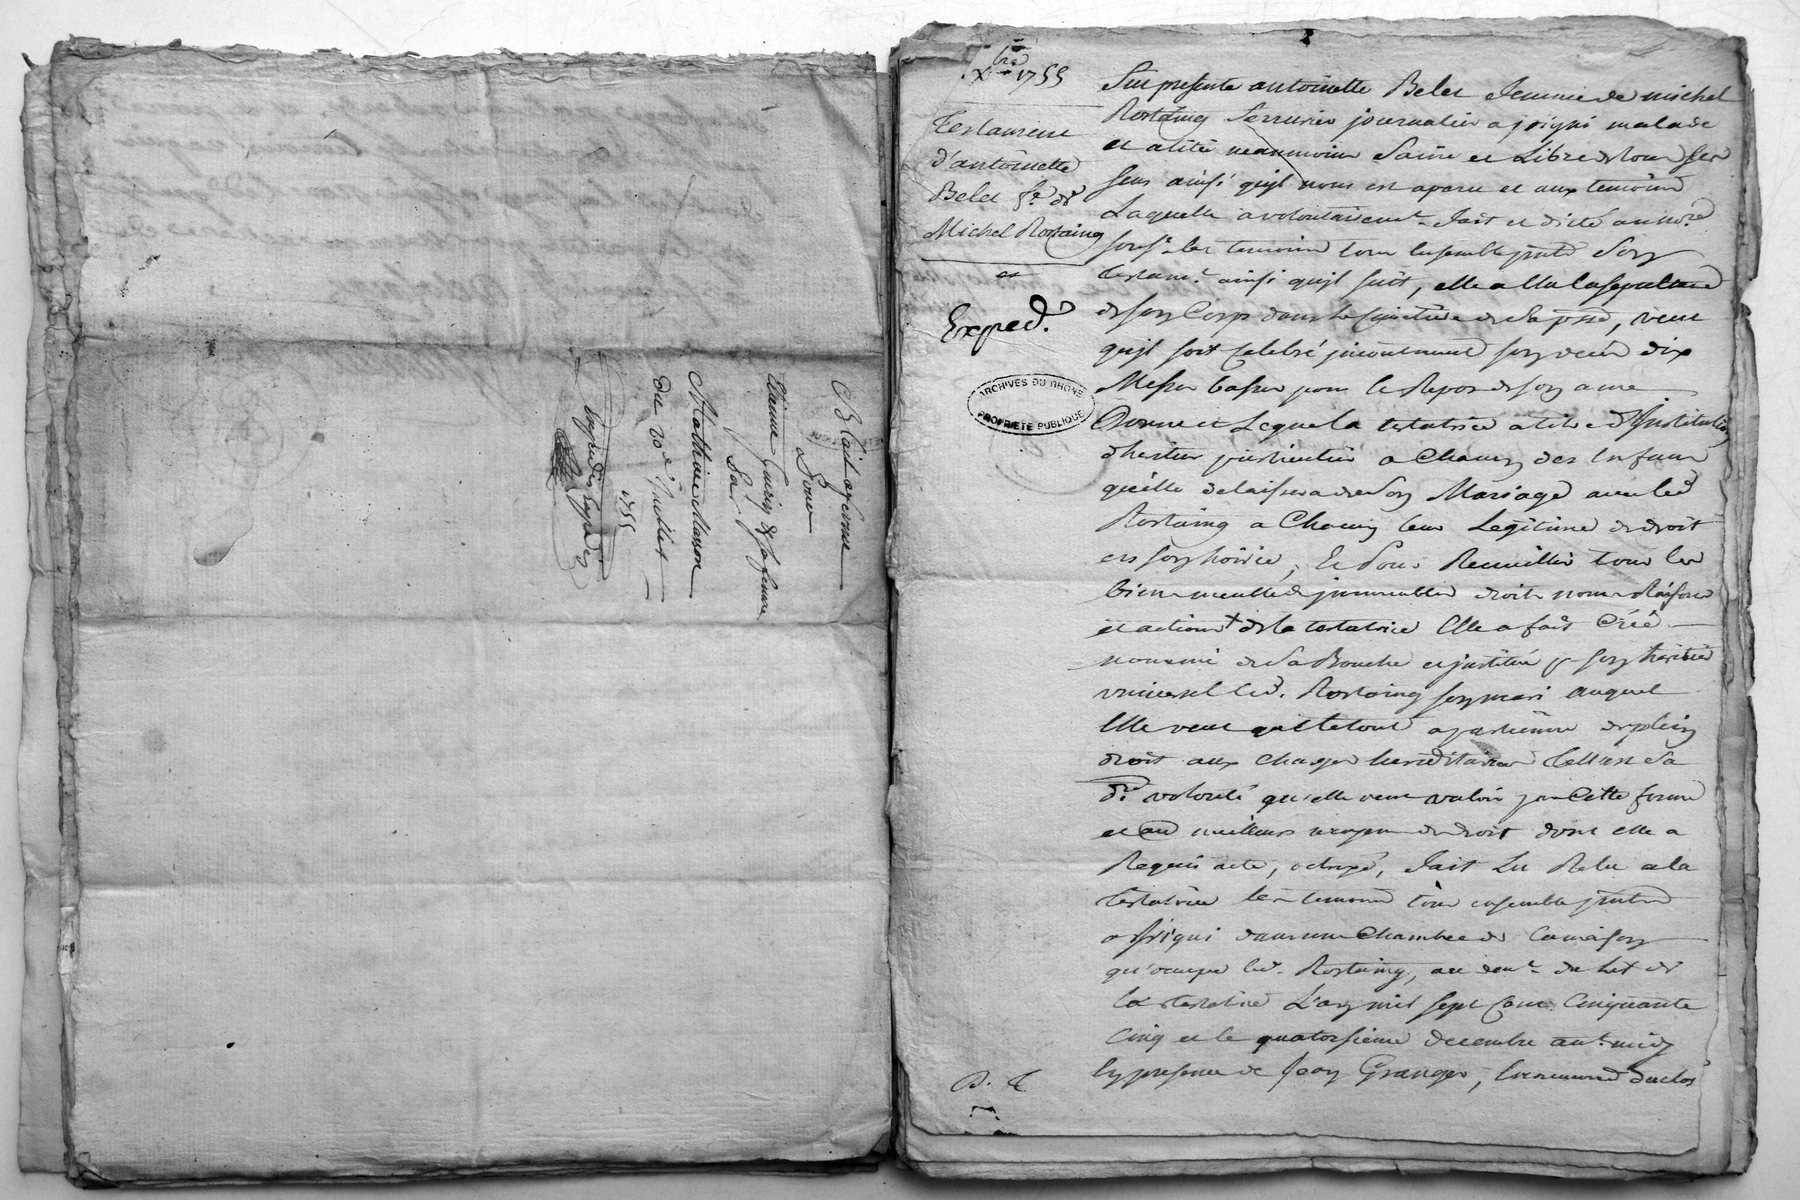 Blait a ferme
Pour
Etienne
& sa femme
Par
Mathieu Masson
du 20e Juillet
1755
Xbre 1755
Testament
d'antoinette
Belet fe. de
Michel Rostaing
et
Exped.
ARCHIVES DU RHONE
PROPRIETE PUBLIQUE
Fut presente antoinette Belet femme de michel
Rostaing Serrurier journalier a grigni malade
et alité neanmoins Saine et Libre de tous ses
sens ainsi qu'jl nous est aparu et aux temoins
Laquelle a volontairemt. fait et dicté au nore.
sous. les temoins tous ensemble pnts Son
testamt. ainsi qu'jl suit, elle a Elu la sepulture
de son Corps dans le Cimetiere de Sa psse, veut
qu'jl soit Celebré jncontinent son decés dix
Messes basses pour le Repos de son ame
Donne et Legue la testatrice a titre d'Institution
d'heritier particuliere a Chacun des Enfans
qu'elle delaissera de Son Mariage avec led.
Rostaing a Chacun leur Legitime de droit
en son hoirie, Et Pour Recueillir tous les
biens meubles jmmeubles droits noms Raisons
et actions + de la testatrice Elle a fait Créé
nommé de Sa Bouche et jnstitué pr son heritier
universel led. Rostaing son mari auquel
Elle veut que le tout apartienne de plein
droit aux charges hereditaires Telle est Sa
dre volonté qu'elle veut valoir par Cette forme
et au meilleurs moyen de droit dont elle a
Requis acte, octroyé, fait Lu Relu a la
testatrice les temoins tous ensemble pnts
a grigni dans une Chambre de la maison
qu'ocupe led. Rostaing, au devt. du Lit de
la testatrice L'an mil sept Cent Cinquante
Cinq et le quatorsieme decembre avt. midy
En presence de Jean Granger,
B. T